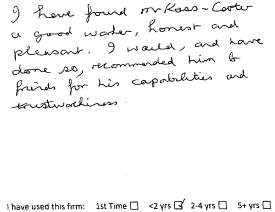 I have found mr Ross-Carter
a good worker, honest and
pleasant. I would, and have
done so, recommended him to
friends for his capabilities and
trustworthiness.
I have used this firm: 1st Time ☐ <2 yrs ☑ 2-4 yrs ☐ 5+ yrs ☐